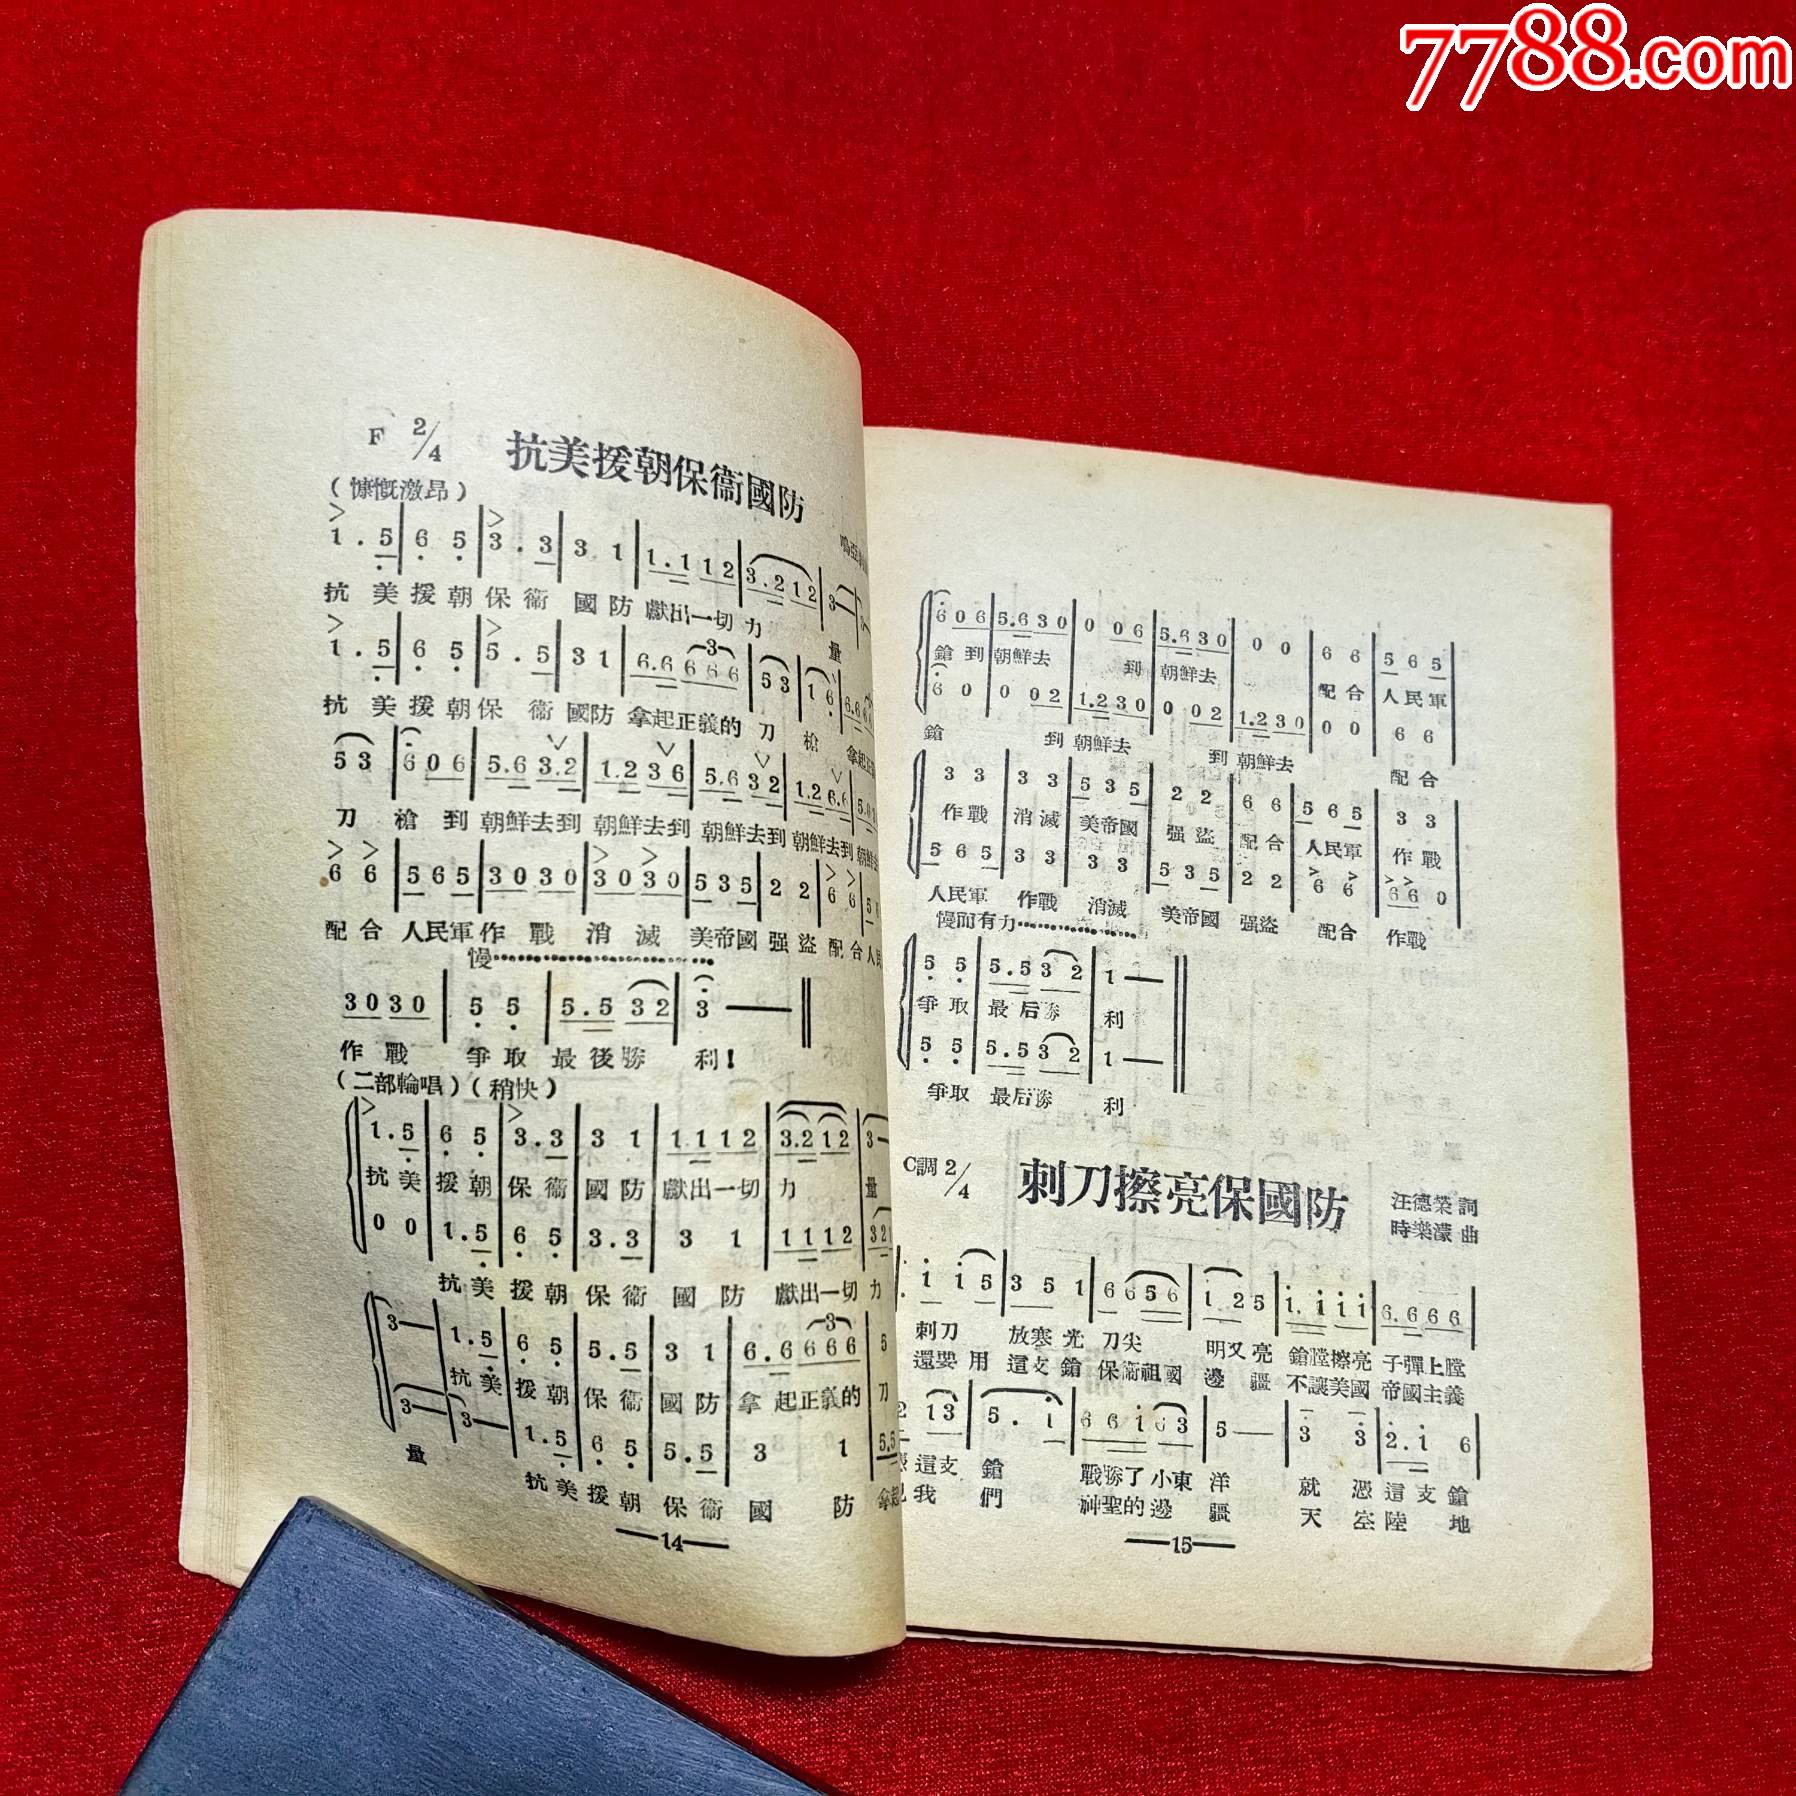 7788.com
F 2/4
抗美援朝保衞國防
(慷慨激昂)
1．5 | 6 5 | 3．3 | 3 1 | 1．1 1 2 | 3．2 1 2 | 3—
抗 美 援 朝 保 衞 國 防 獻出一切 力 量
1．5 | 6 5 | 5．5 | 3 1 | 6．6 6 6 6 | 5 3 | 1 6
抗 美 援 朝 保 衞 國防 拿起正義的 刀 槍
5 3 | 6 0 6 | 5．6 3．2 | 1．2 3 6 | 5．6 3 2 | 1．2 6．6
刀 槍 到 朝鮮去到 朝鮮去到 朝鮮去到 朝鮮去到
6 6 | 5 6 5 | 3 0 3 0 | 3 0 3 0 | 5 3 5 | 2 2 | 6 6
配 合 人民軍 作 戰 消 滅 美帝國 强 盜 配 合
慢
3 0 3 0 | 5 5 | 5．5 3 2 | 3 —
作 戰 爭 取 最 後 勝 利！
(二部輪唱) (稍快)
1．5 | 6 5 | 3．3 | 3 1 | 1 1 1 2 | 3．2 1 2 | 3—
抗 美 援 朝 保 衞 國 防 獻出一切 力 量
0 0 | 1．5 | 6 5 | 3．3 | 3 1 | 1 1 1 2
抗 美 援 朝 保 衞 國 防 獻出一切 力
3— | 1．5 | 6 5 | 5．5 | 3 1 | 6．6 6 6 6 | 5
抗 美 援 朝 保 衞 國 防 拿 起正義的 刀
3— | 3— | 1．5 | 6 5 | 5．5 | 3 1 | 5．5
量 抗 美 援 朝 保 衞 國 防
—14—
6 0 6 | 5．6 3 0 | 0 0 6 | 5．6 3 0 | 0 0 | 6 6 | 5 6 5
鎗 到 朝鮮去 到 朝鮮去 配 合 人民軍
6 0 | 0 0 2 | 1．2 3 0 | 0 0 2 | 1．2 3 0 | 0 0 | 6 6
鎗 到 朝鮮去 到 朝鮮去 配 合
3 3 | 3 3 | 5 3 5 | 2 2 | 6 6 | 5 6 5 | 3 3
作 戰 消 滅 美帝國 强 盜 配 合 人民軍 作 戰
5 6 5 | 3 3 | 3 3 | 5 3 5 | 2 2 | 6 6 | 6 6 0
人民軍 作戰 消滅 美帝國 强盜 配合 作戰
慢而有力
5 5 | 5．5 3 2 | 1 —
爭 取 最 后 勝 利
5 5 | 5．5 3 2 | 1 —
爭取 最后勝 利
C調 2/4
刺刀擦亮保國防
汪德榮 詞
時樂濛 曲
1 1 5 | 3 5 1 | 6 6 5 6 | 1 2 5 | 1．1 1 1 | 6．6 6 6
刺刀 放寒光 刀尖 明又亮 鎗膛擦亮 子彈上膛
還要 用 這支鎗 保衞祖國 邊 疆 不讓美國 帝國主義
2 1 3 | 5．1 | 6 6 1 6 3 | 5 — | 3 3 | 2．1 6
這支 鎗 戰勝了 小東 洋 就 憑 這 支 鎗
我 們 神聖的 邊 疆 天 空 陸 地
—15—